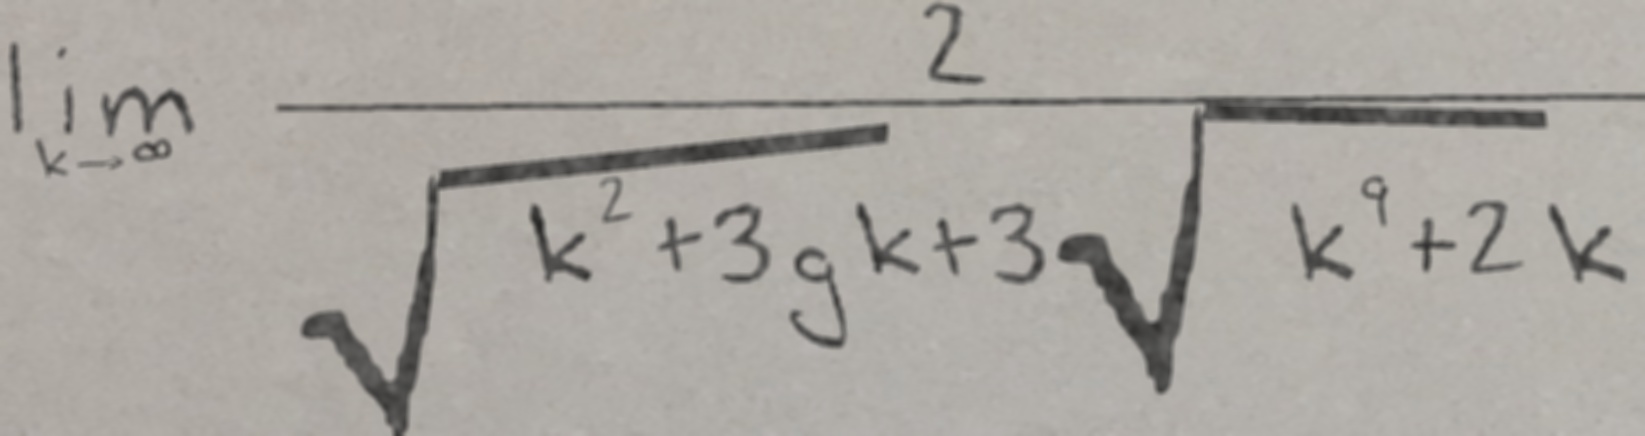 \lim_{k \to \infty} \frac{2}{\sqrt{k^2 + 3gk} + 3\sqrt{k^9 + 2k}}